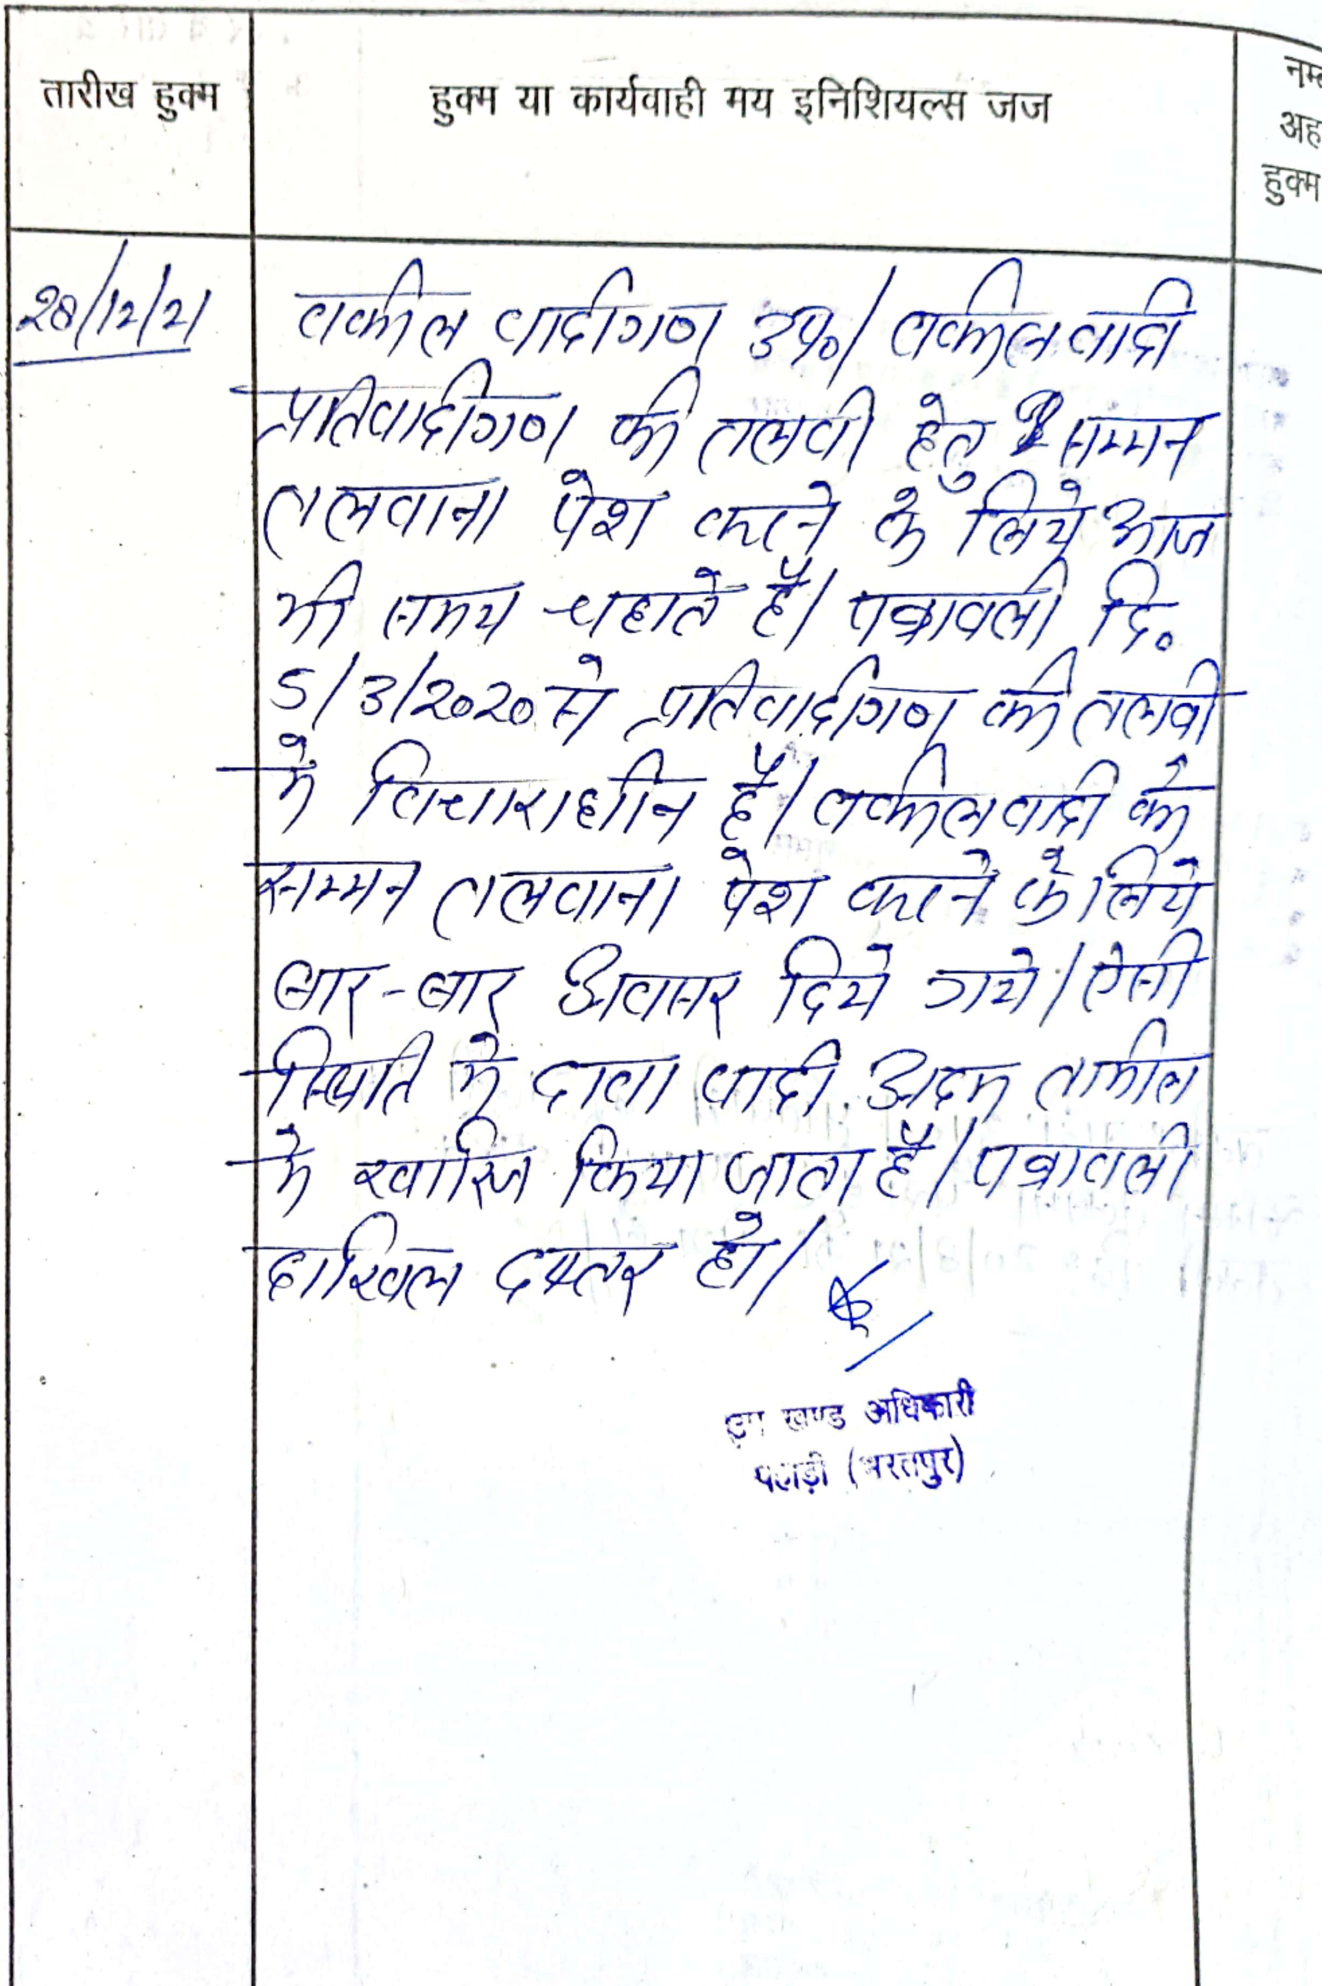 तारीख हुक्म
हुक्म या कार्यवाही मय इनिशियल्स जज
नम्ब
अह
हुक्म
28/12/21
वकील वादीगण उप०/ वकील वादी
प्रतिवादीगण की तलवी हेतु सम्मन
तलवाना पेश करने के लिये आज
भी समय चहाते है/ पत्रावली दि०
5/3/2020 से प्रतिवादीगण की तलवी
मे विचाराधीन है/ वकील वादी को
सम्मन तलवाना पेश करने के लिये
बार-बार अवसर दिये गये/ ऐसी
स्थिति मे दावा वादी अदम तामील
मे खारिज किया जाता है/ पत्रावली
दाखिल दफ्तर हो/
उप खण्ड अधिकारी
पहाड़ी (भरतपुर)